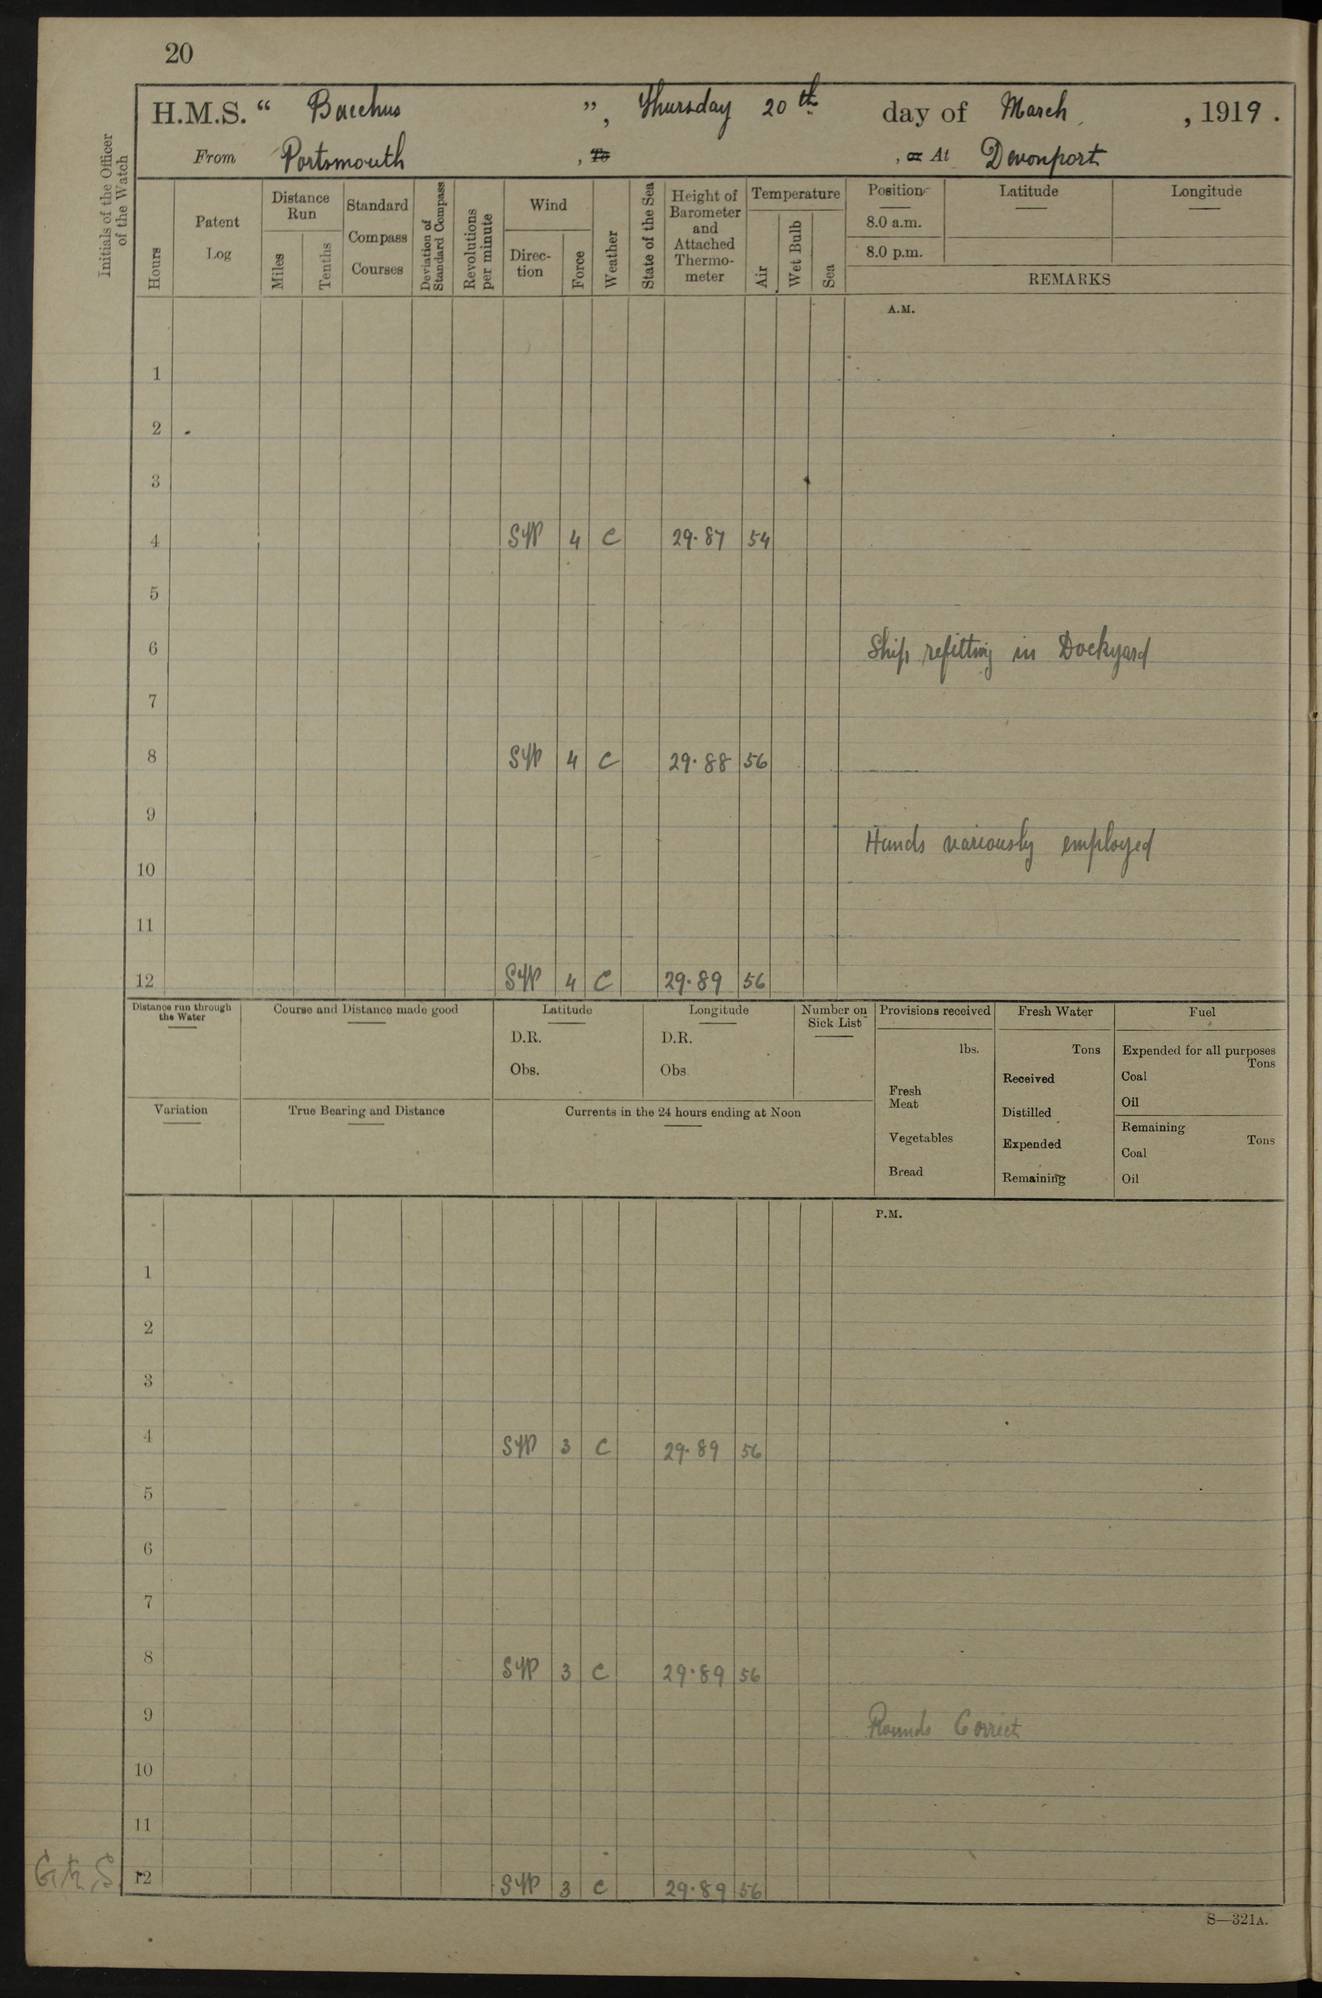 20
H.M.S. “ Bacchus ”, Thursday 20th day of March, 1919.
From Portsmouth, To , or At Devonport
Initials of the Officer of the Watch
Hours
Patent Log
Distance Run
Miles
Tenths
Standard Compass Courses
Deviation of Standard Compass
Revolutions per minute
Wind
Direction
Force
Weather
State of the Sea
Height of Barometer and Attached Thermometer
Temperature
Air
Wet Bulb
Sea
Position Latitude Longitude
8.0 a.m.
8.0 p.m.
REMARKS
A.M.
1
2
3
4 SW 4 C 29.87 54
5
6 Ship refitting in Dockyard
7
8 SW 4 C 29.88 56
9
Hands variously employed
10
11
12 SW 4 C 29.89 56
Distance run through the Water
Course and Distance made good
Latitude
D.R.
Obs.
Longitude
D.R.
Obs
Number on Sick List
Provisions received
lbs.
Fresh Meat
Vegetables
Bread
Fresh Water
Tons
Received
Distilled
Expended
Remaining
Fuel
Expended for all purposes
Tons
Coal
Oil
Remaining
Tons
Coal
Oil
Variation
True Bearing and Distance
Currents in the 24 hours ending at Noon
P.M.
1
2
3
4 SW 3 C 29.89 56
5
6
7
8 SW 3 C 29.89 56
9 Rounds Correct
10
11
12 SW 3 C 29.89 56
S—321A.